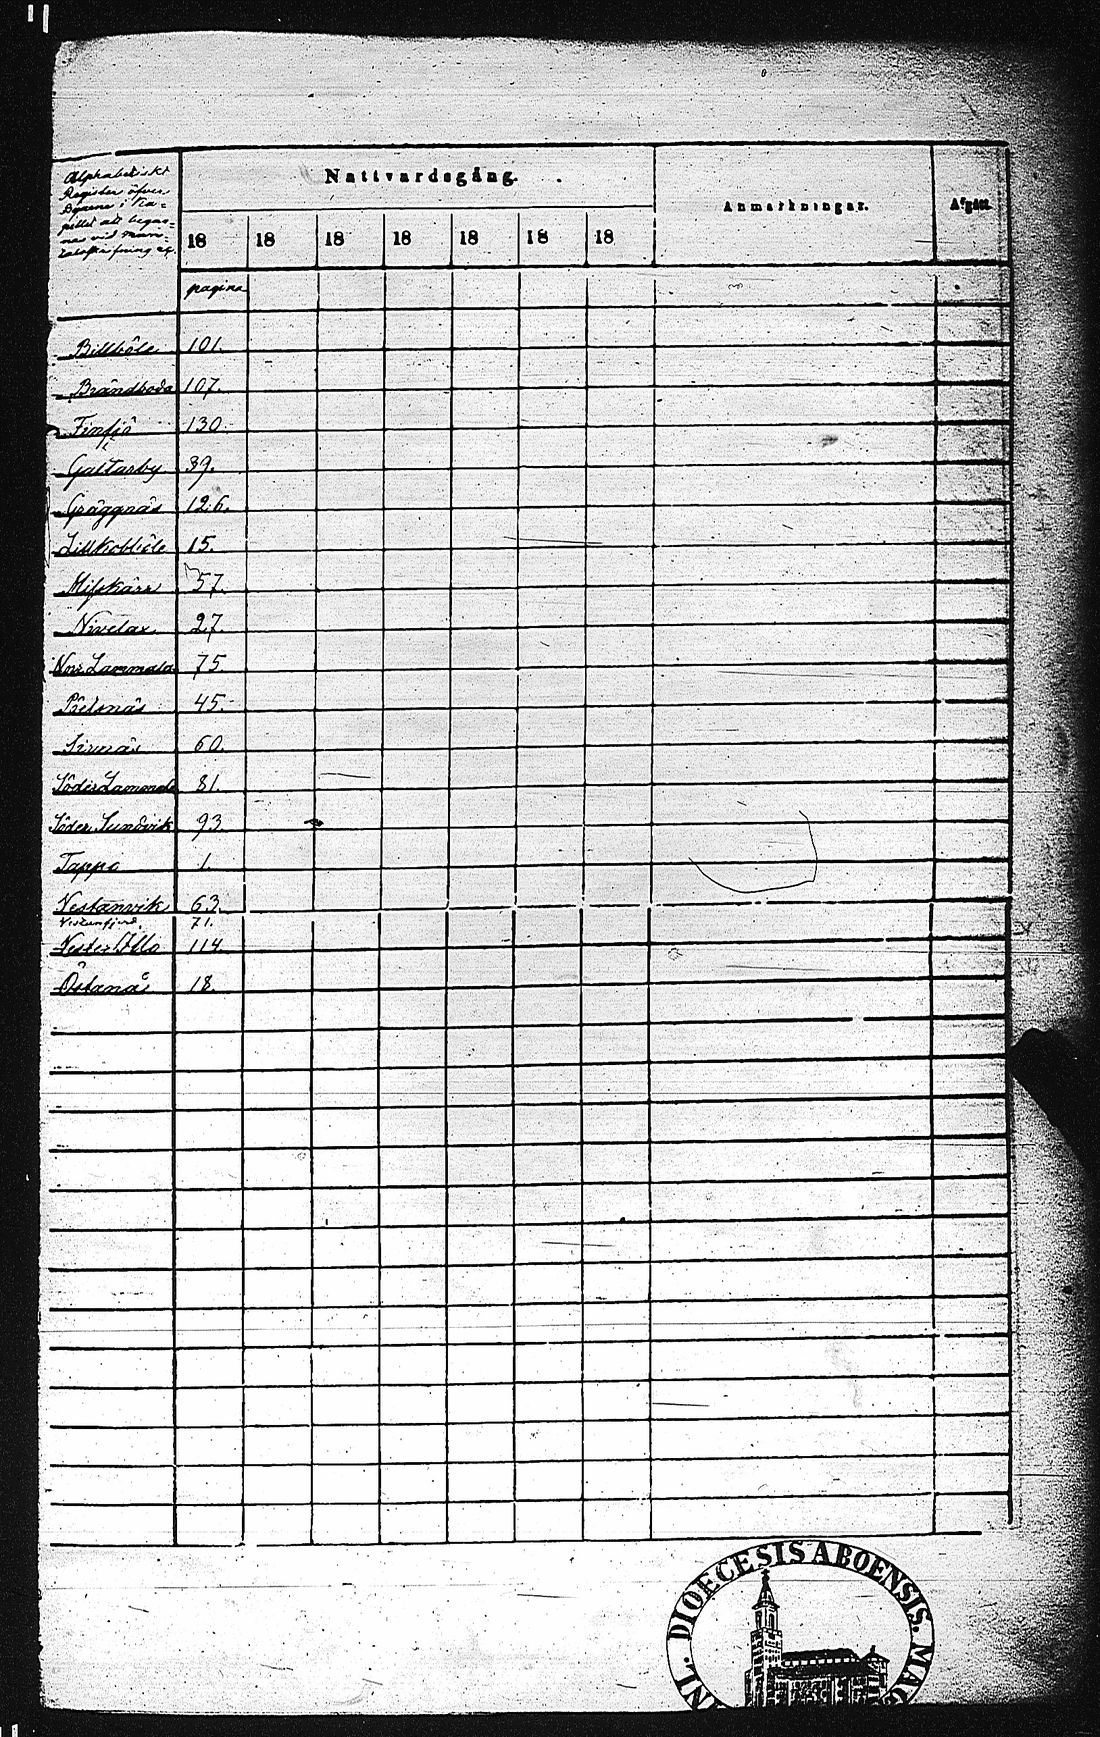 Alphabetiskt
Register öfver
Byarne i Ka-
pellet att begag-
nas vid Man-
talsskrifning etc.
Nattvardsgång.
Anmärkningar.
Afgått.
18 18 18 18 18 18 18
pagina
Billböle 101.
Brändboda 107.
Finfjö 130.
Galtarby 39.
Gräggnäs 126.
Lillkobböle 15.
Misskärr 57.
Nivelax 27.
Norr Lammala 75.
Pälsnäs 45.
Sirnäs 60.
Söder Lammala 81.
Söder Sundvik 93.
Tappo 1.
Vestanvik 63.
Vestanfjerd. 71.
Vester Ölmo 114.
Östanå 18.
DIOECESIS ABOENSIS. MAG